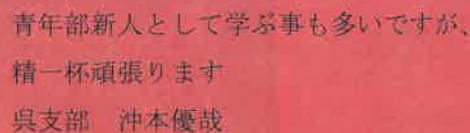 青年部新人として学ぶ事も多いですが、
精一杯頑張ります
呉支部　沖本優哉